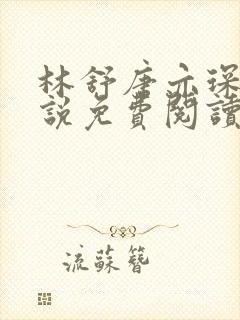 林舒唐亦琛
說免費閱讀
流蘇簪